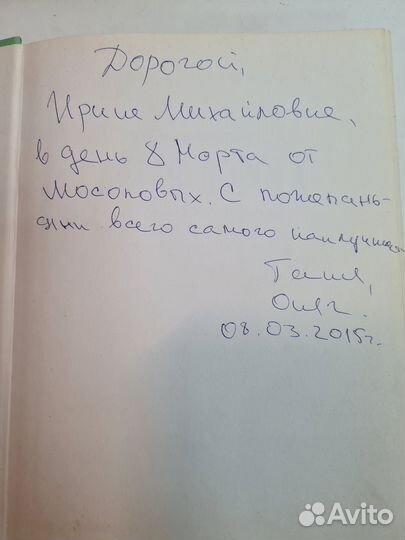 Дорогой,
Ирине Михайловне,
в день 8 Марта от
Мосоловых. С пожелань-
ями всего самого наилучшего
Таня,
Олег.
08.03.2015г.
Avito